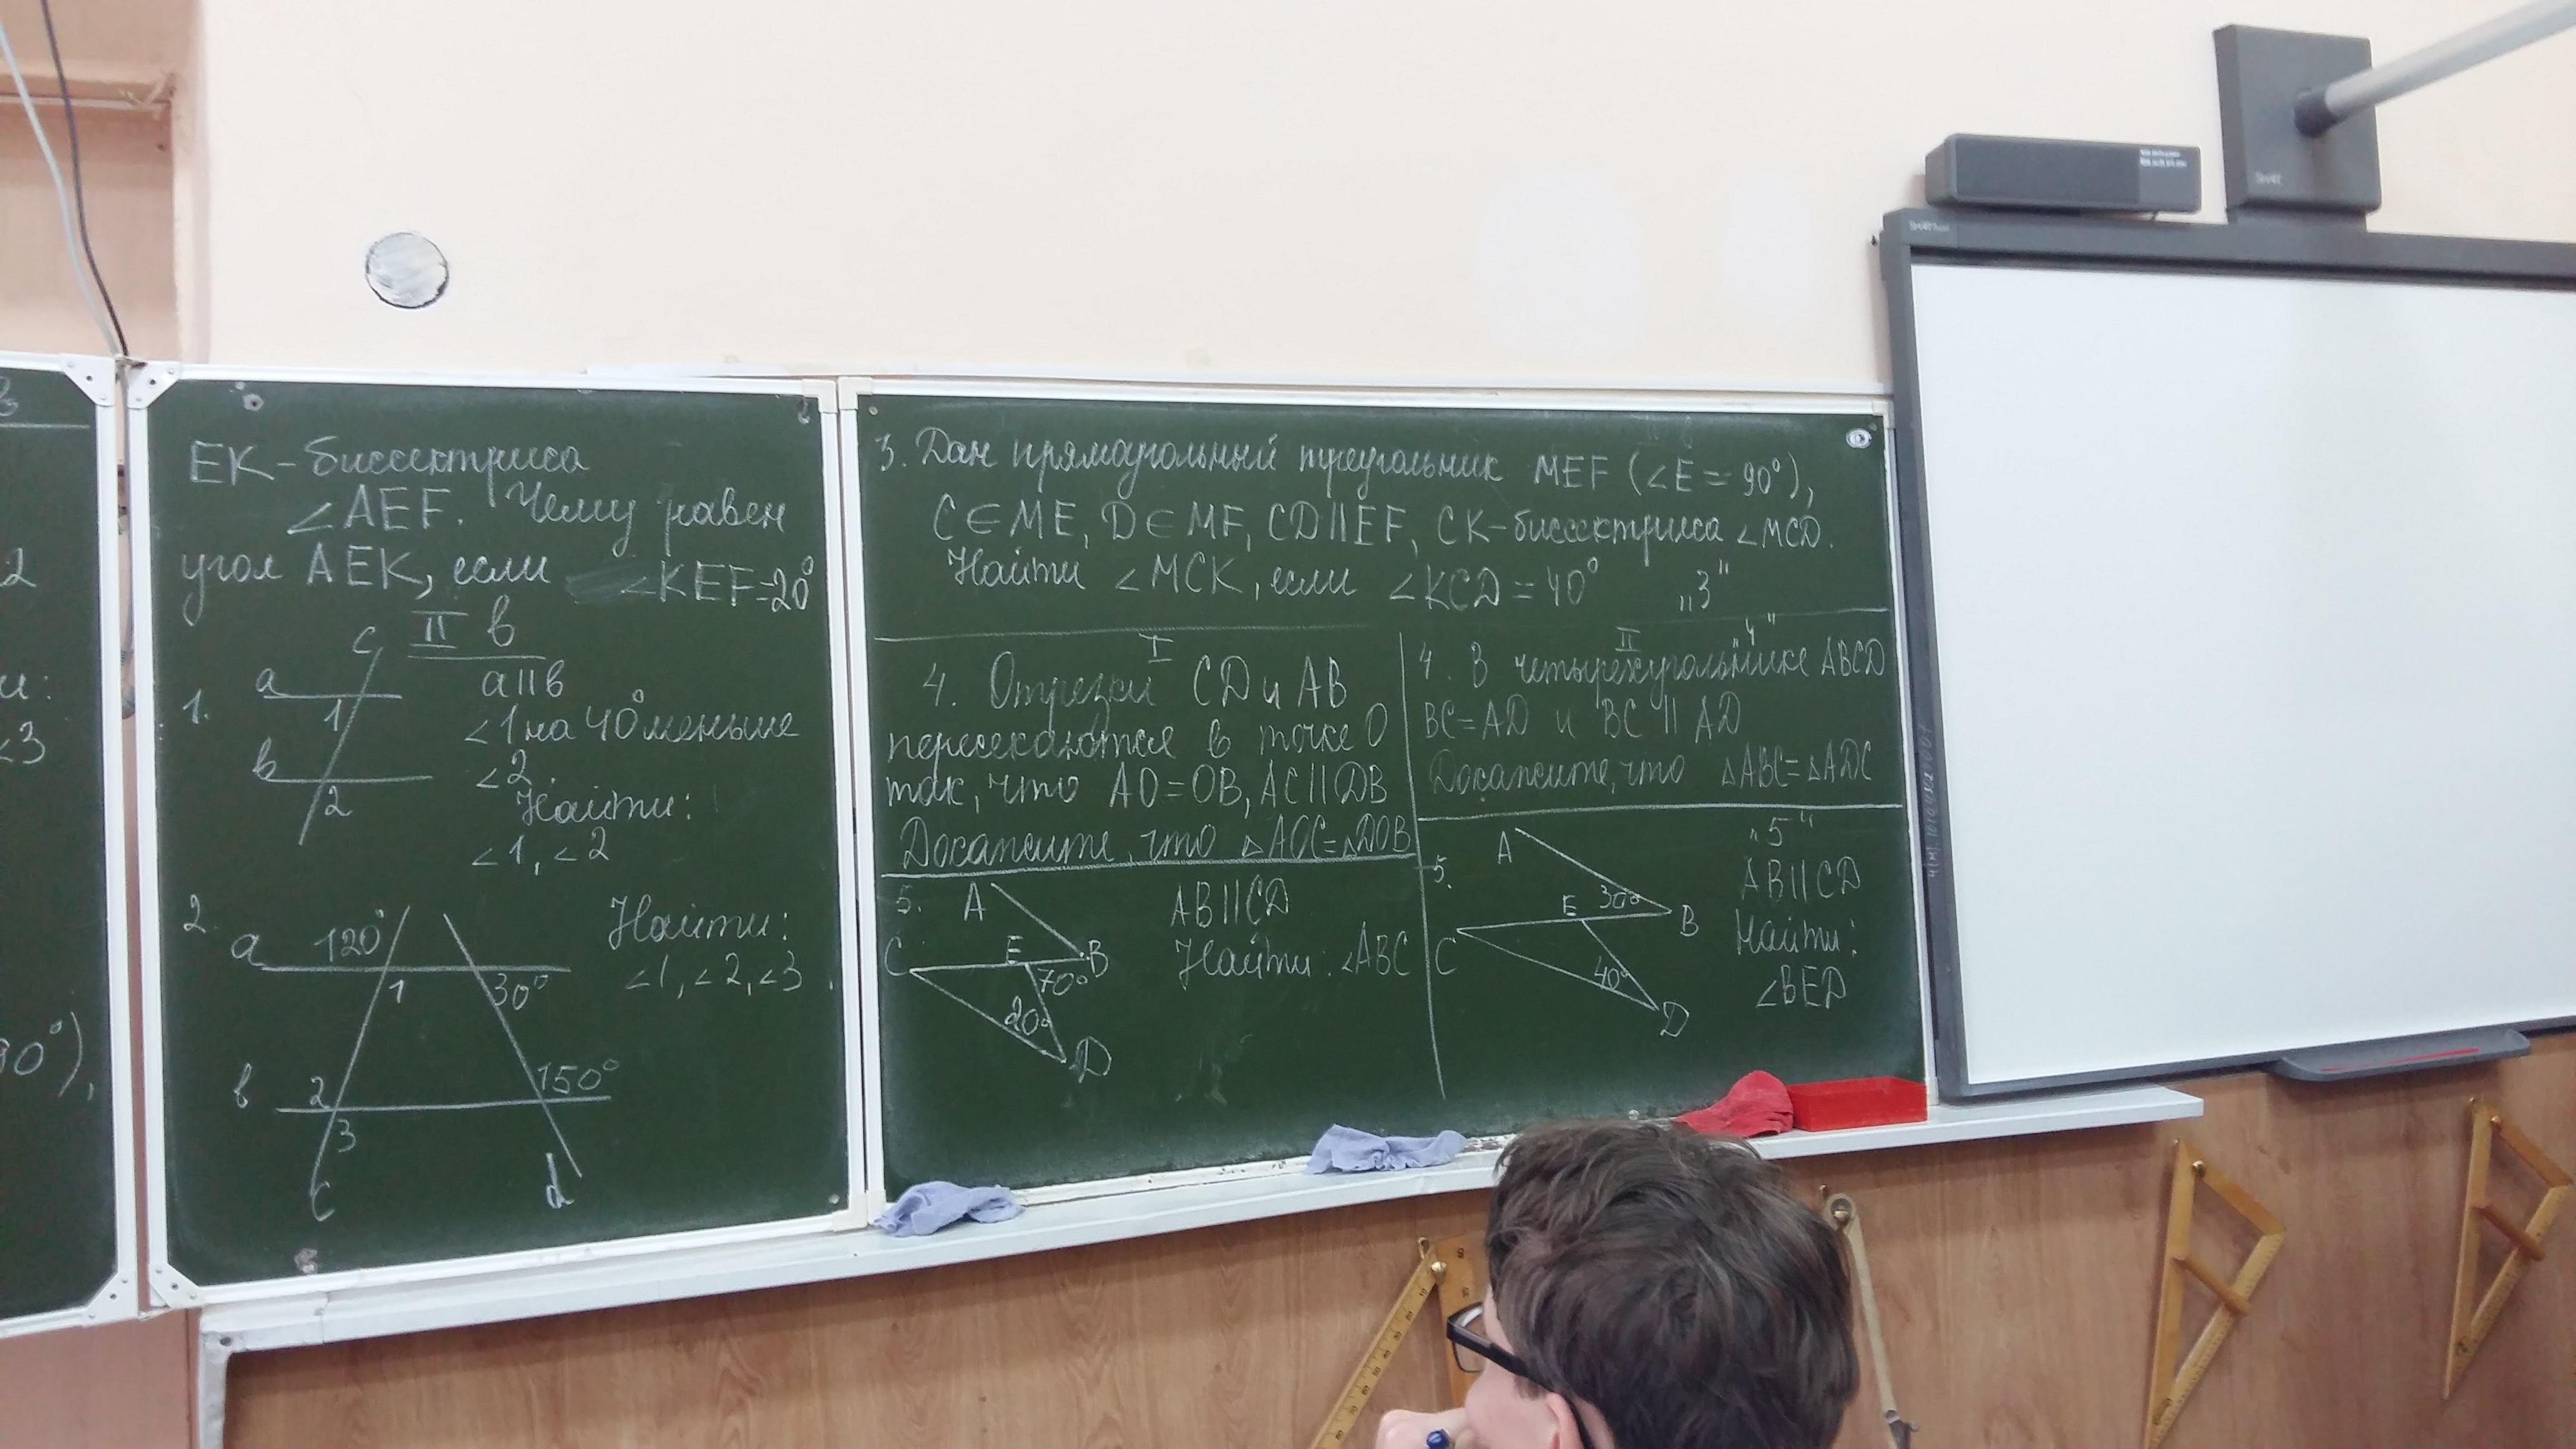 2
<3
90°),
EK - биссектриса
∠AEF. Чему равен
угол AEK, если ∠KEF=20°
II в
c
a
1
1.
в
2
a||в
∠1 на 40° меньше
∠2.
Найти:
∠1, ∠2
2.
a 120°
1 30°
в 2 150°
3
c d
Найти:
∠1, ∠2, ∠3
3. Дан прямоугольный треугольник MEF (∠E = 90°),
C∈ME, D∈MF, CD||EF, CK-биссектриса ∠MCD.
Найти ∠MCK, если ∠KCD = 40° „3"
I
4. Отрезки CD и AB
пересекаются в точке O
так, что AO=OB, AC||DB
Докажите, что △AOC=△DOB
5.
A
C E B
70°
20°
D
AB||CD
Найти: ∠ABC
II „4"
4. В четырехугольнике ABCD
BC=AD и BC || AD
Докажите, что △ABC=△ADC
5.
A
30°
E B
C
40°
D
„5"
AB||CD
Найти:
∠BED